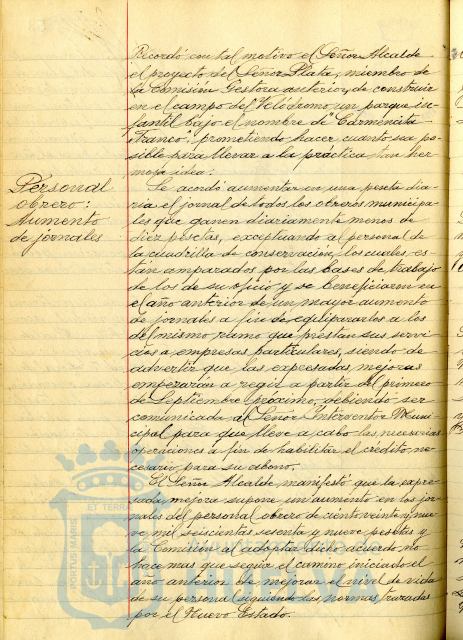 Recordó con tal motivo el Señor Alcalde
el proyecto del Señor Plata, miembro de
la Comisión Gestora anterior, de construir
en el campo del Velódromo un parque in-
fantil bajo el nombre de "Carmencita
Franco", prometiendo hacer cuanto sea po-
sible para llevar a la práctica tan her-
mosa idea.
Personal
obrero:
Aumento
de jornales
Se acordó aumentar en una peseta dia-
ria el jornal de todos los obreros municipa-
les que ganen diariamente menos de
diez pesetas, exceptuando al personal de
la cuadrilla de conservación, los cuales es-
tán amparados por las bases de trabajo
de los de su oficio y se beneficiaron en
el año anterior de un mayor aumento
de jornales a fin de equipararlos a los
del mismo ramo que prestan sus servi-
cios a empresas particulares, siendo de
advertir que las expresadas mejoras
empezarán a regir a partir del primero
de Septiembre próximo, debiendo ser
comunicada al Señor Interventor Muni-
cipal para que lleve a cabo las necesarias
operaciones a fin de habilitar el crédito ne-
cesario para su abono.
El Señor Alcalde manifestó que la expre-
sada mejora supone un aumento en los jor-
nales del personal obrero de ciento veinte y nue-
ve mil seiscientas sesenta y nueve pesetas y
la Comisión al adoptar dicho acuerdo no
hace mas que seguir el camino iniciado el
año anterior de mejorar el nivel de vida
de su personal siguiendo las normas trazadas
por el Nuevo Estado.
ET TERRA
PORTUS MARIS